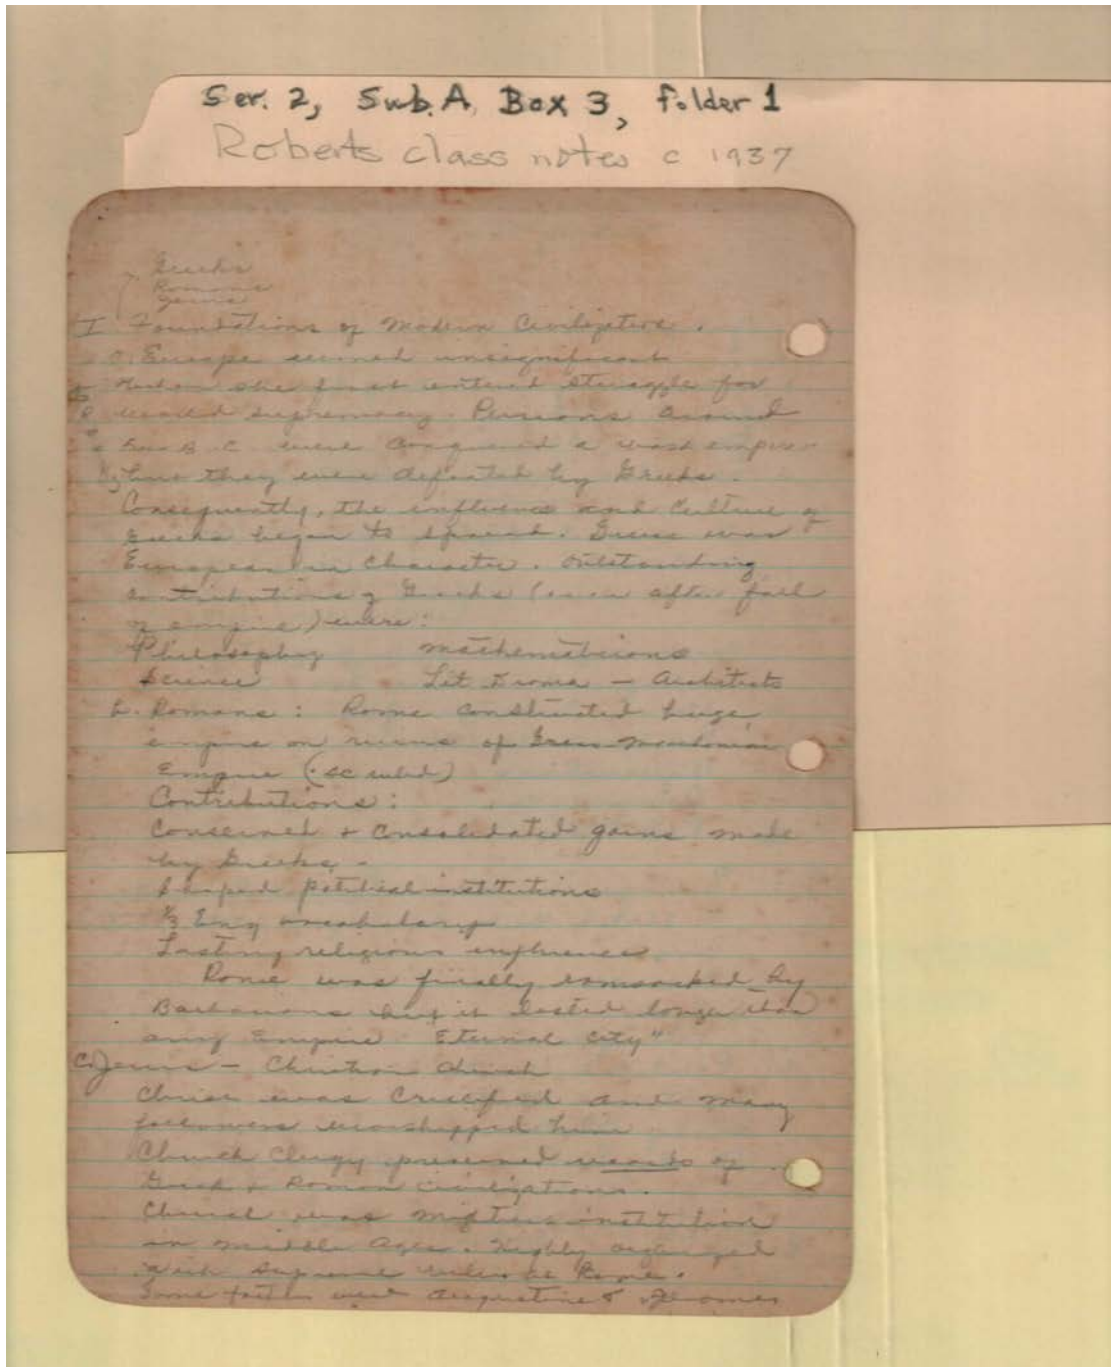 Ser. 2, Sub. A, Box 3, folder 1
Roberts class notes c 1937
Greeks
Romans
Jews
I Foundations of Modern Civilization.
a. Europe seemed unsignificant
when she first entered struggle for
world supremacy. Persians around
B.C. were conquered a vast empire
they were defeated by Greeks.
Consequently, the influence and culture of
Greeks began to spread. Greece was
European in character. Outstanding
contributions of Greeks (even after fall
of empire) were:
Philosophy mathematicians
Science Lit Drama – Architects
b. Romans: Rome constructed huge
empire on ruins of Greco-
Empire
Contributions:
Conserved + consolidated gains made
by Greeks.
Shaped political institutions
⅓ Eng vocabulary
Lasting religious influence
Rome was finally ransacked by
Barbarians but it lasted longer than
any Empire Eternal City"
C. Jews – Christian church
Christ was Crucified and many
followers worshipped him
Church Clergy preserved records of
Greek + Roman civilizations.
Church was institution
in middle Ages. Highly organized
with supreme ruler at Rome.
Some were Augustine &